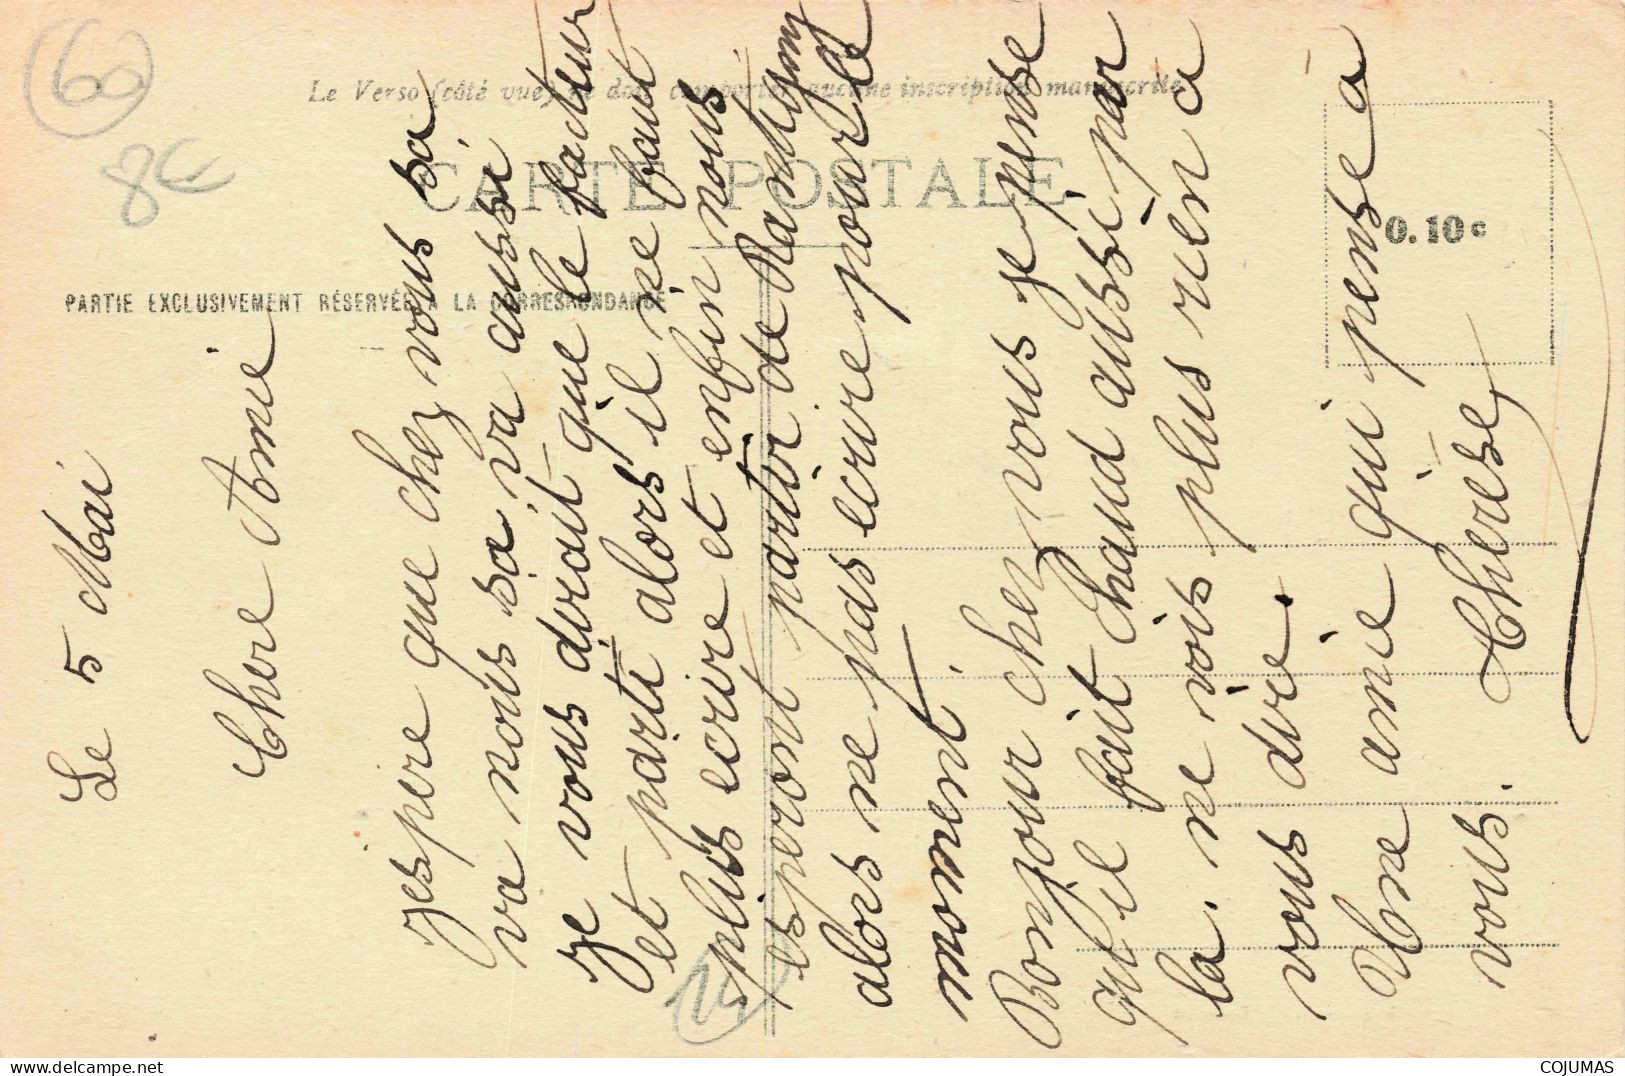 60
8€
Le Verso (côté vue) ne doit comporter aucune inscription manuscrite
CARTE POSTALE
PARTIE EXCLUSIVEMENT RÉSERVÉE A LA CORRESPONDANCE
0.10c
Le 5 Mai
Chere Amie
jespere que chez vous sa
va nous sa va aussi
je vous dirait que le facteur
et parti alors il ne faut
plus ecrire et enfin nous
esperont partir de Rantigny
alors ne pas ecrire pour le
moment.
Bonjour chez vous je pense
qu'il fait chaud aussi par
la. ne vois plus rien a
vous dire.
Une amie qui pense a
vous. Therese
COJUMAS